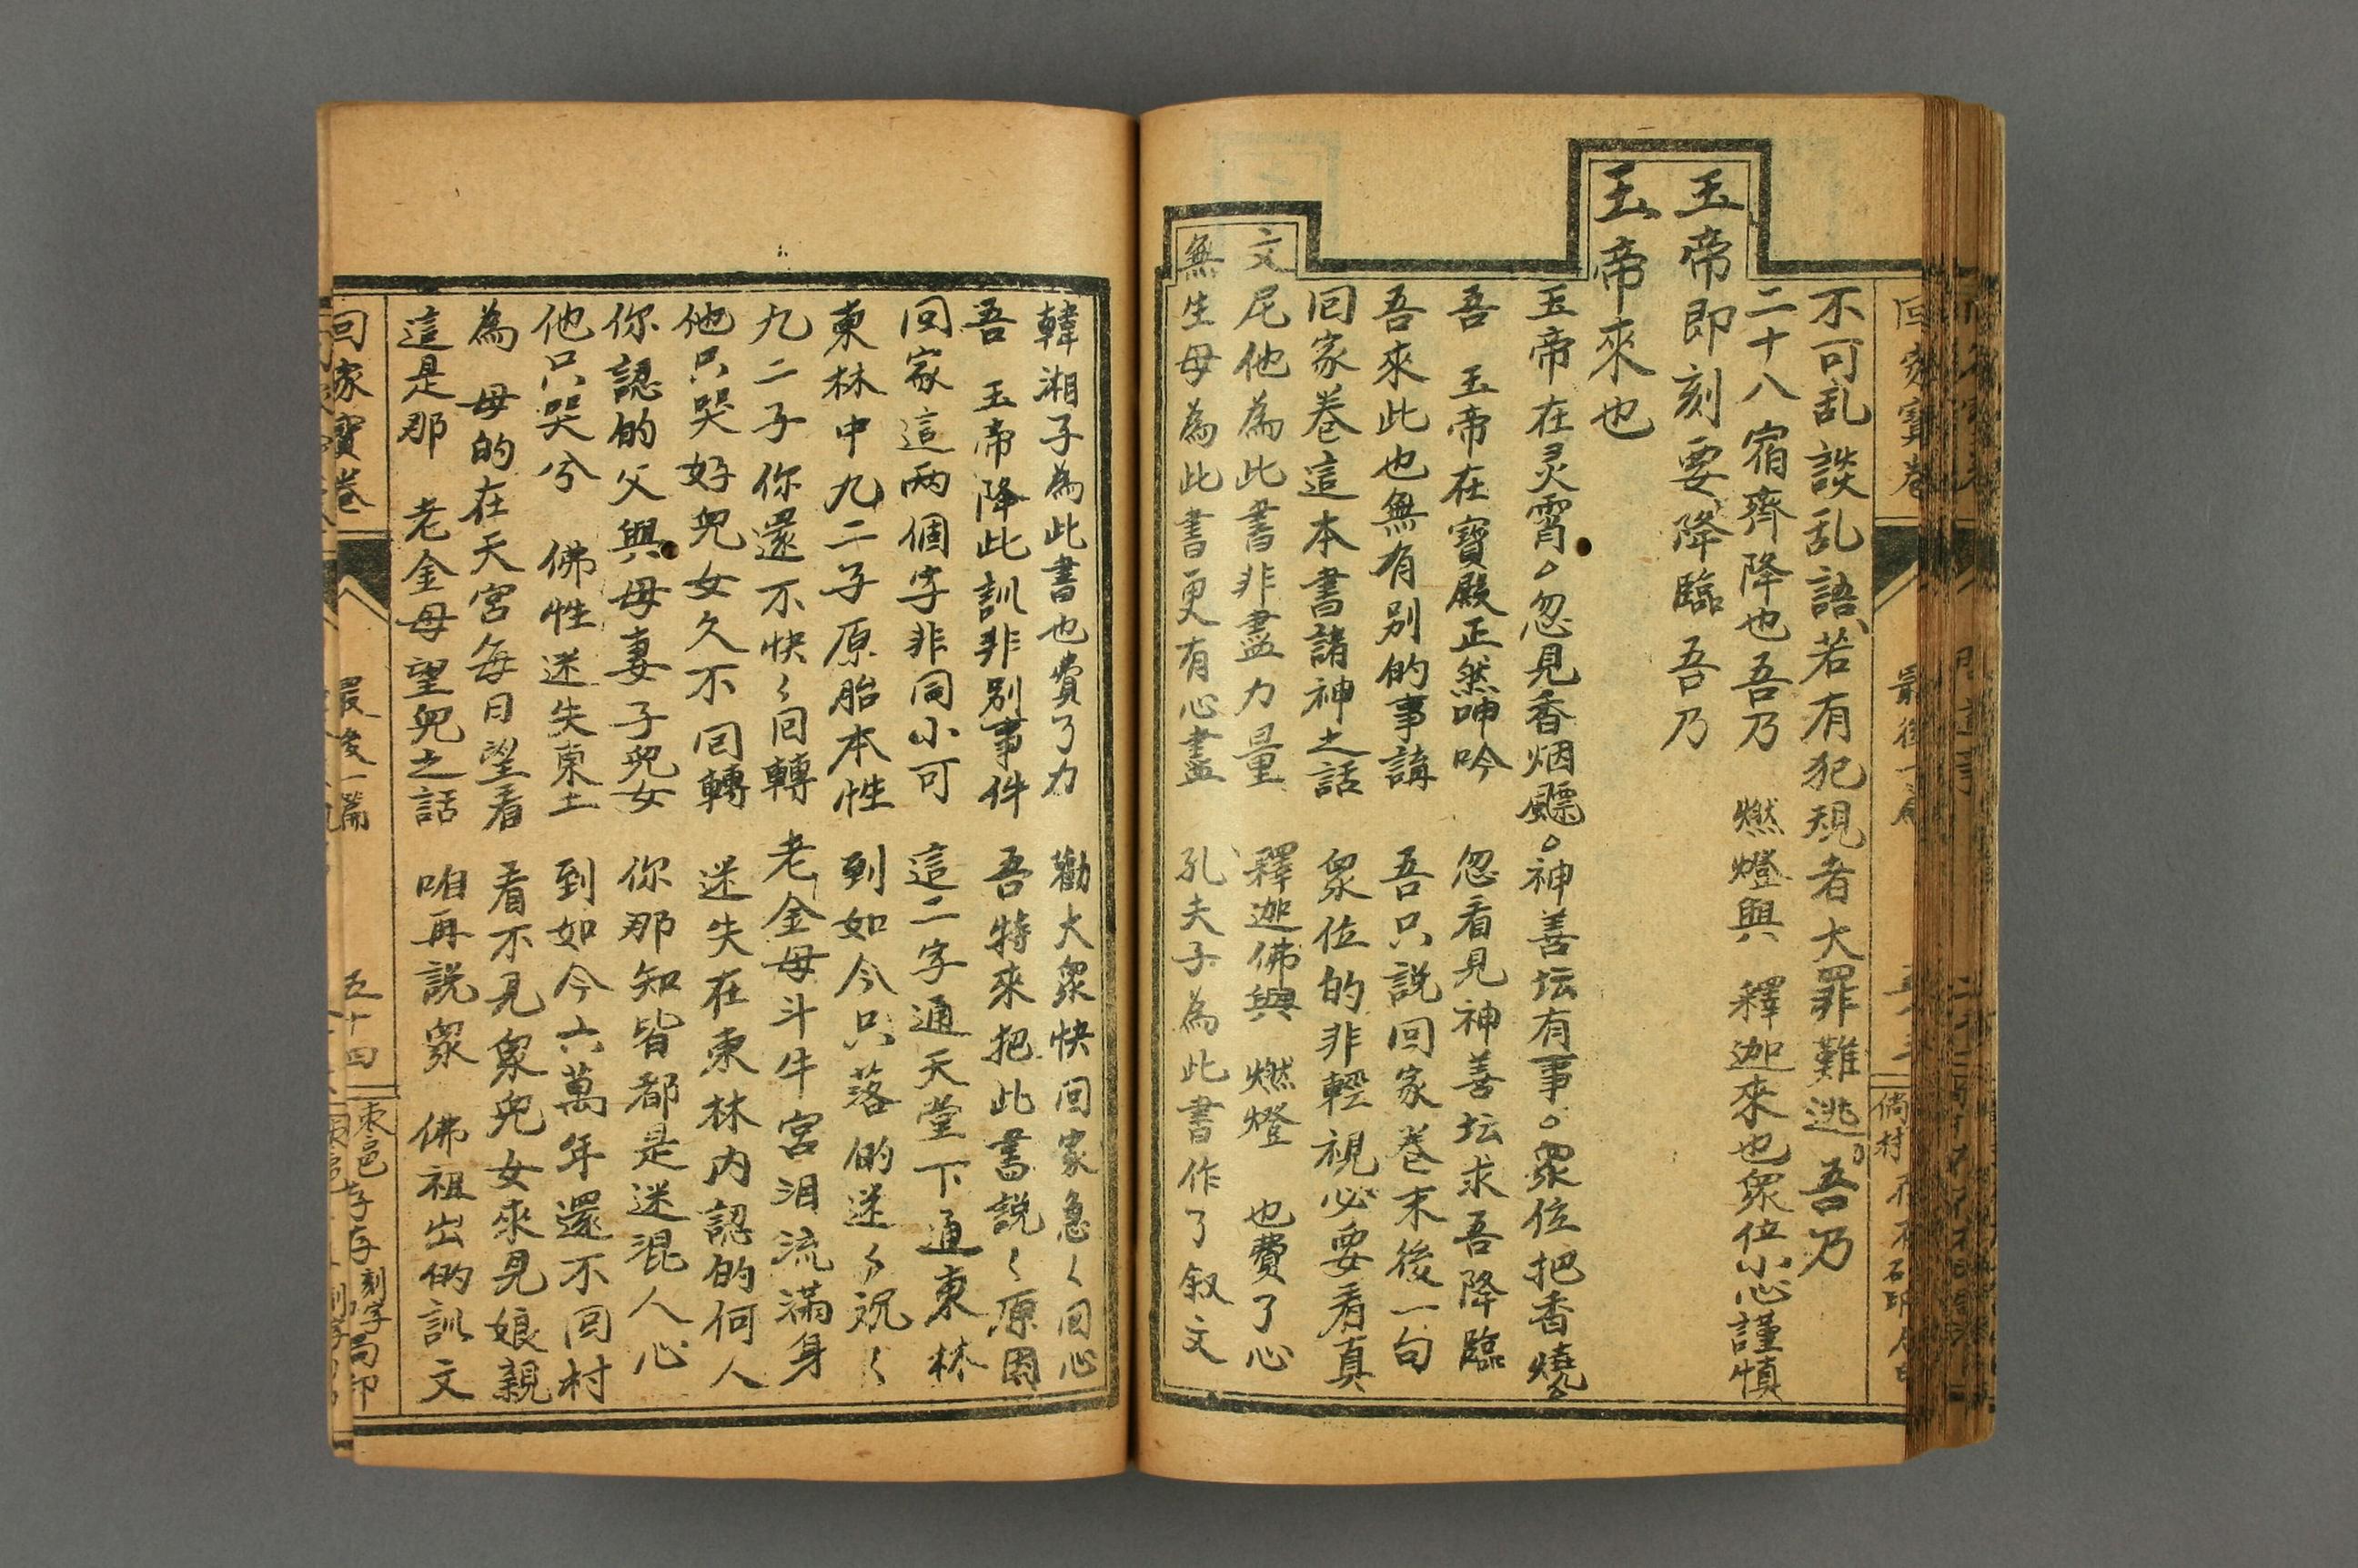 回家寶卷 最後一篇
不可乱談乱語若有犯規者大罪難逃 吾乃
二十八宿齊降也吾乃 燃燈與 釋迦來也眾位小心謹慎
玉帝即刻要降臨 吾乃
玉帝來也
玉帝在灵霄。忽見香烟飃。神善坛有事。眾位把香燒
吾 玉帝在寶殿正然呻吟 忽看見神善坛求吾降臨
吾來此也無有别的事講 吾只說回家卷末後一句
回家卷這本書諸神之話 眾位的非輕視必要看真
文尼他為此書非盡力量 釋迦佛與 燃燈 也費了心
無生母為此書更有心盡 孔夫子為此書作了叙文
韓湘子為此書也費了力 勸大眾快回家急〻回心
吾 玉帝降此訓非别事件 吾特來把此書説〻原因
回家這两個字非同小可 這二字通天堂下通東林
東林中九二子原胎本性 到如今只落的迷〻
九二子你還不快〻回轉 老金母斗牛宮泪流滿身
他只哭好兒女久不回轉 迷失在東林内認的何人
你認的父與母妻子兒女 你那知皆都是迷混人心
他只哭兮 佛性迷失東土 到如今六萬年還不回村
為 母的在天宮每日望看 看不見眾兒女來見娘親
這是那 老金母望兒之話 咱再説眾 佛祖出的訓文
回家寶卷 最後一篇 五十四 刻字局印